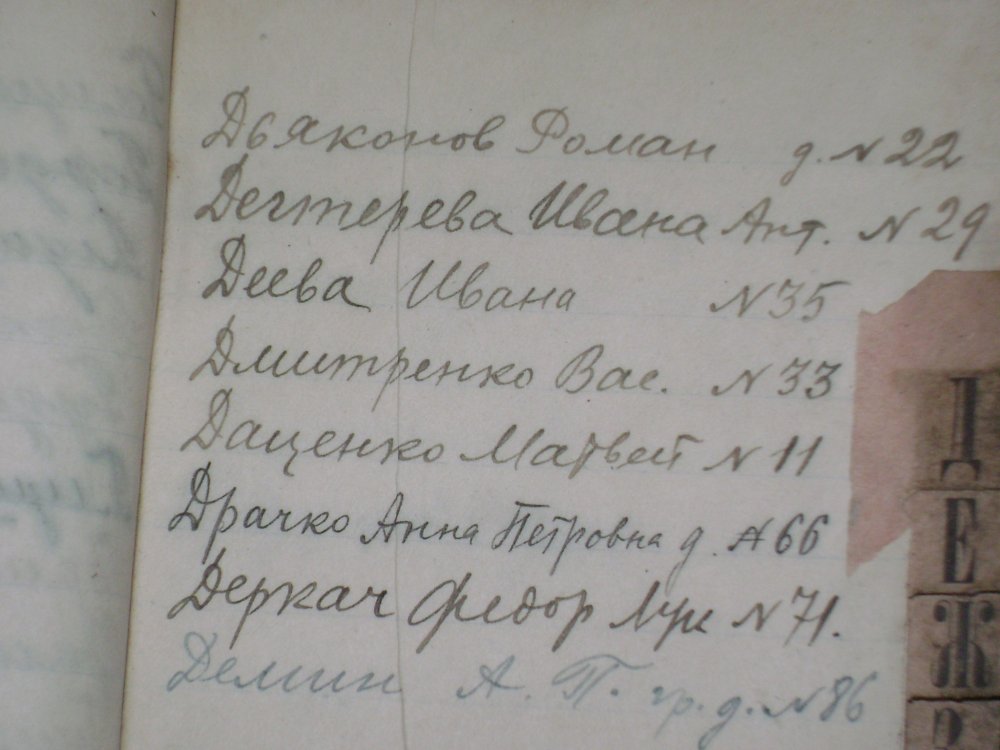 Дьяконов Роман д. N 22
Дегтерева Ивана Ант. N 29
Деева Ивана N 35
Дмитренко Вас. N 33
Даценко Матвей N 11
Драчко Анна Петровна д. N 66
Деркач Федор Лук N 71.
Демин А. П. гр. д. N 86
Д
Е
Ж